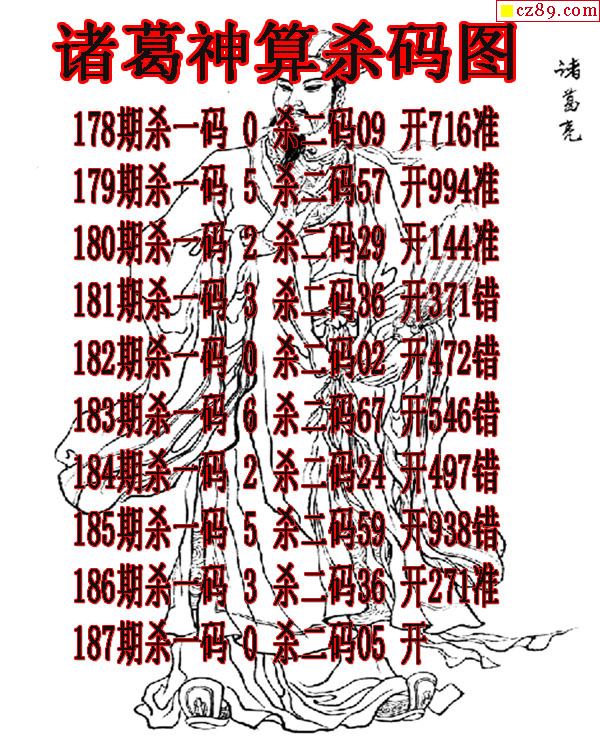 cz89.com
诸葛神算杀码图
诸葛亮
178期杀一码 0 杀二码09 开716准
179期杀一码 5 杀二码57 开994准
180期杀一码 2 杀二码29 开144准
181期杀一码 3 杀二码36 开371错
182期杀一码 0 杀二码02 开472错
183期杀一码 6 杀二码67 开546错
184期杀一码 2 杀二码24 开497错
185期杀一码 5 杀二码59 开938错
186期杀一码 3 杀二码36 开271准
187期杀一码 0 杀二码05 开